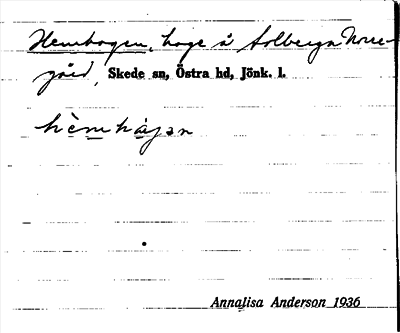 Hemhagen, hage å Solberga Norre-
gård, Skede sn, Östra hd, Jönk. l.
hèmhàgən
Annalisa Anderson 1936